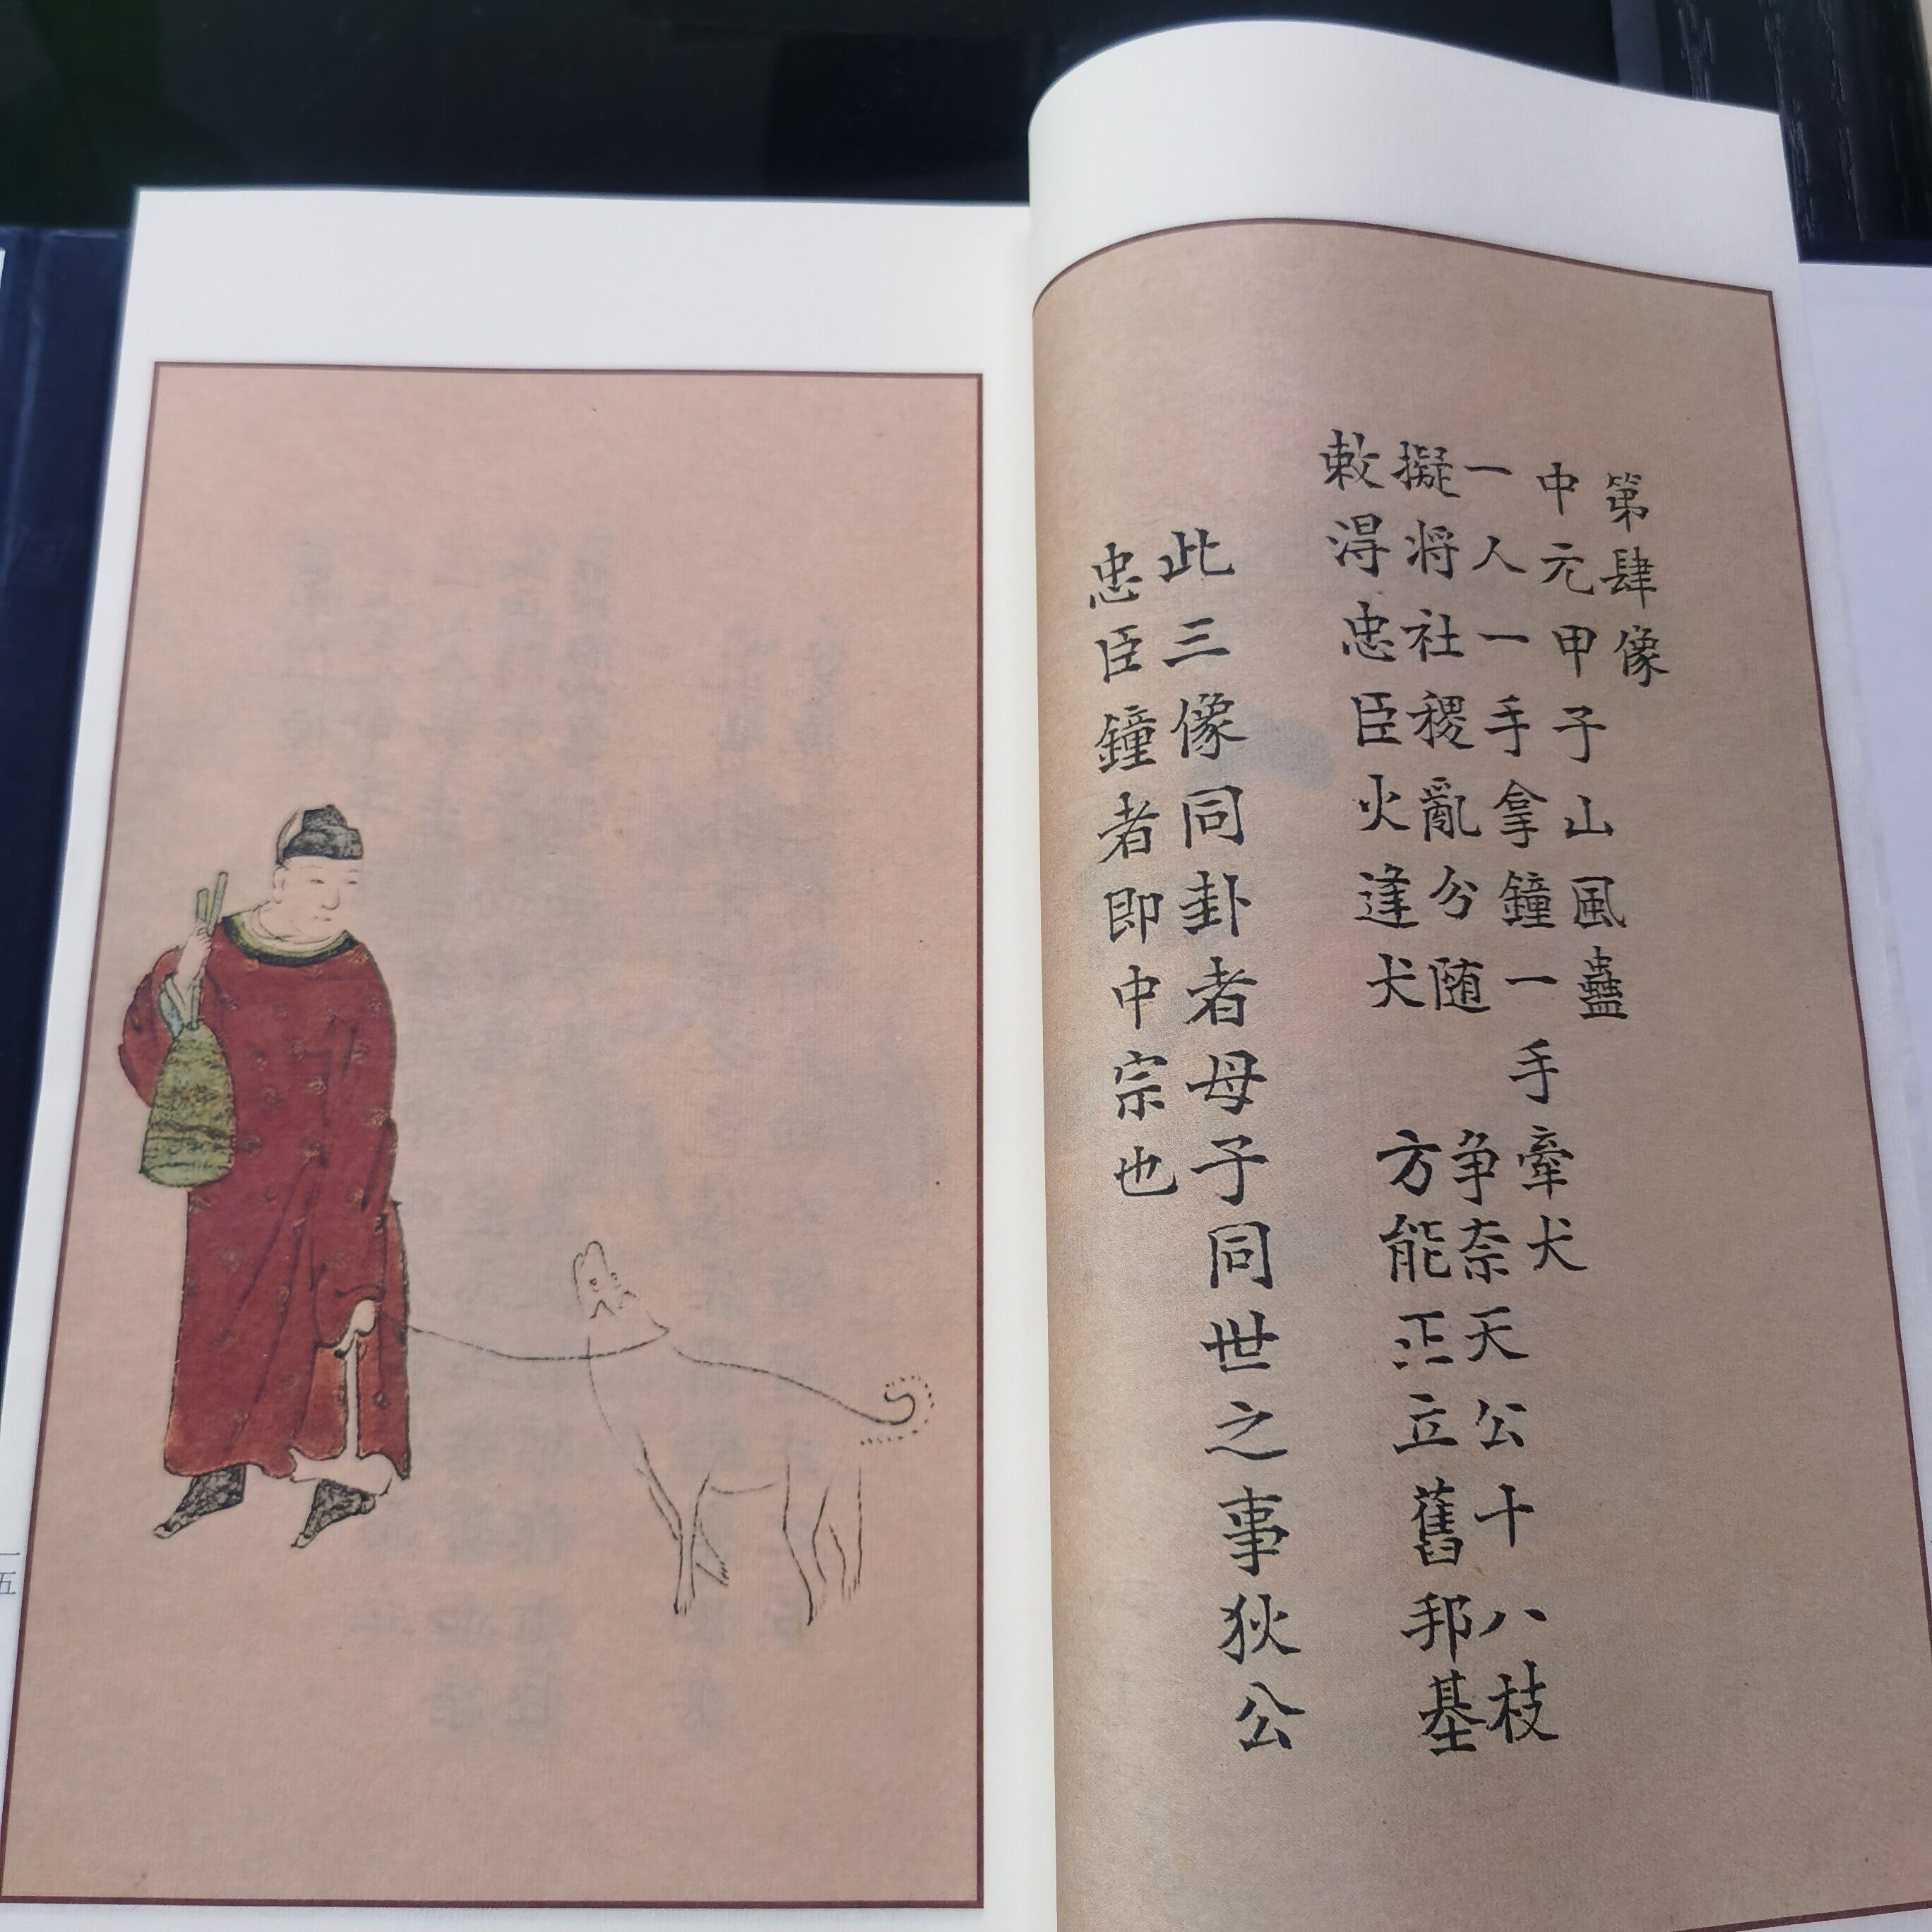 第肆像
中元甲子山風蠱
一人一手拿鐘一手牽犬
擬将社稷亂分随 争奈天公十八枝
敕淂忠臣火逢犬 方能正立舊邦基
此三像同卦者母子同世之事狄公
忠臣鐘者即中宗也
一五